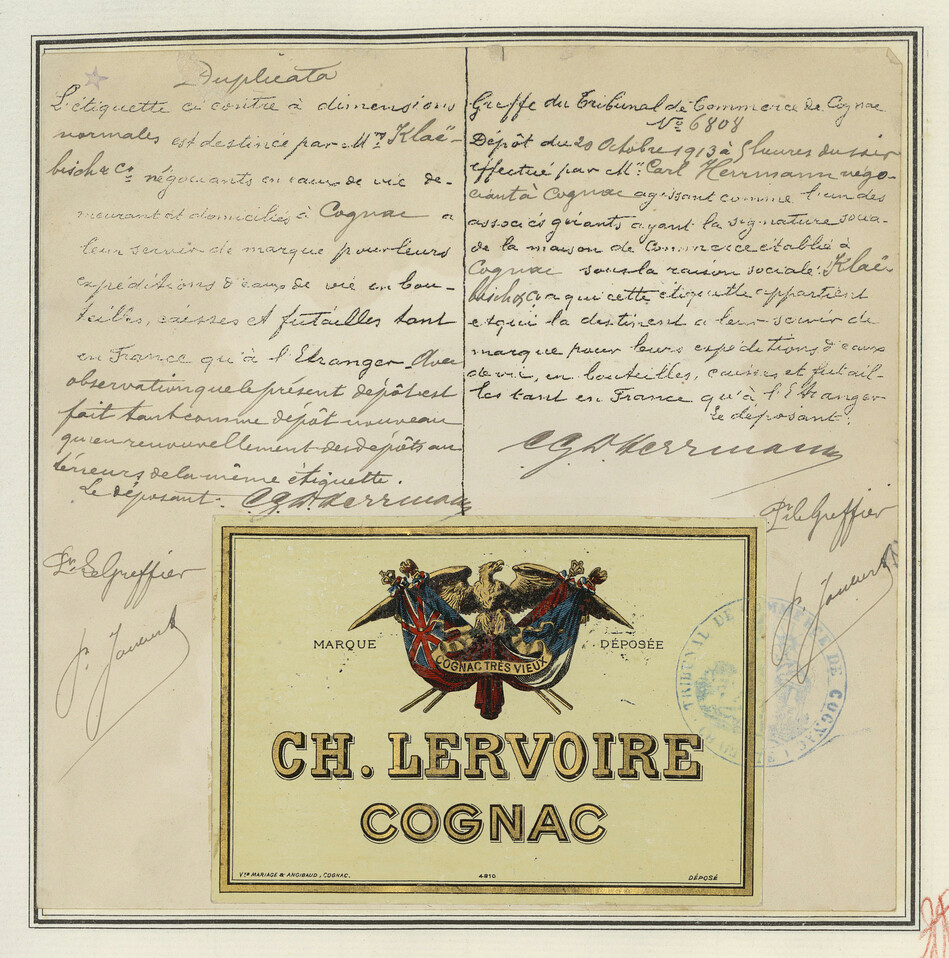 Duplicata
L'étiquette ci contre à dimensions
normales est destinée par Mrs Klaë-
bisch & Co négociants en eaux de vie de-
meurant et domiciliés à Cognac a
leur servir de marque pour leurs
expéditions d'eaux de vie en bou-
teilles, caisses et futailles tant
en France qu'à l'Etranger. Avec
observation que le présent dépôt est
fait tant comme dépôt nouveau
qu'en renouvellement des dépôts an
térieurs de la même étiquette.
Le déposant. C.G.A. Herrmann
Pr Le Greffier
Greffe du Tribunal de Commerce de Cognac
No 6808
Dépôt du 20 Octobre 1913 à 5 heures du soir
effectué par Mr Carl Herrmann négo-
ciant à Cognac agissant comme l'un des
associés gérants ayant la signature socia-
le de la maison de Commerce établie à
Cognac sous la raison sociale: Klaë-
bisch & Co a qui cette étiquette appartient
et qui la destinent a leur servir de
marque pour leurs expéditions d'eaux
de vie, en bouteilles, caisses et futail-
les tant en France qu'à l'Etranger
Le déposant:
Herrmann
Pr le Greffier
MARQUE DÉPOSÉE
COGNAC TRÈS VIEUX
CH. LERVOIRE
COGNAC
Vve MARIAGE & ANGIBAUD, COGNAC. 4810 DÉPOSÉ
TRIBUNAL DE COMMERCE DE COGNAC